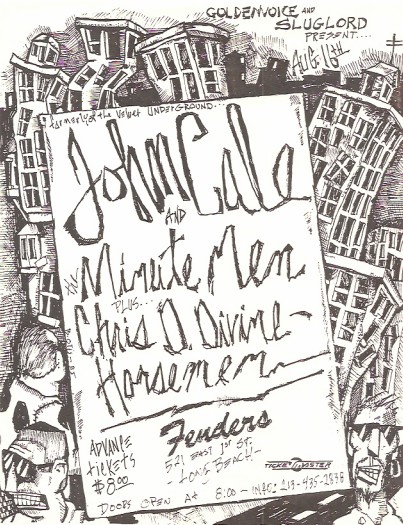 GOLDENVOICE AND
SLUGLORD
PRESENT....
AUG. 16TH
formerly of the Velvet UNDERGROUND...
John Cale
AND
THE Minute Men
PLUS...
Chris D. Divine-
Horsemen
Fenders
521 EAST 1ST ST.
LONG BEACH-
ADVANCE
tickets
$8.00
TICKETMASTER
DOORS OPEN At 8:00 - INFO: 213-435-2838